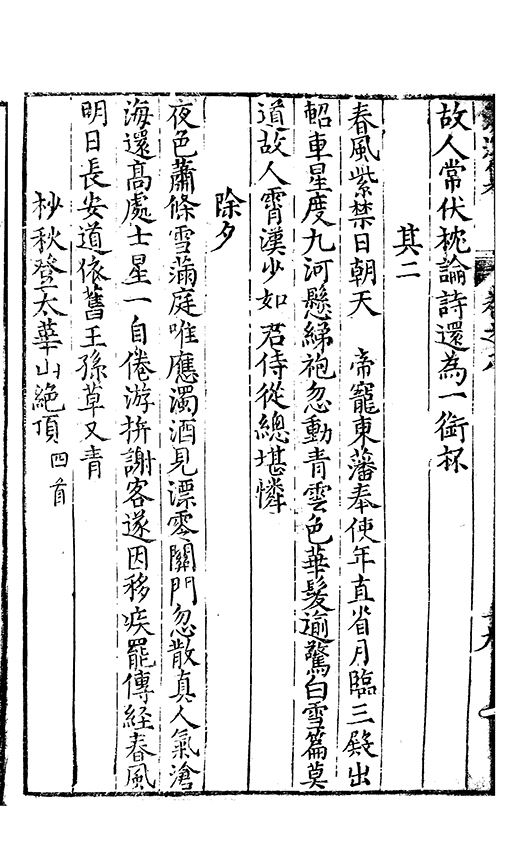 卷之八
故人常伏枕論詩還為一銜杯
其二
春風紫禁日朝天　帝寵東藩奉使年直省月臨三殿出
軺車星度九河懸綈袍忽動青雲色華髮逾驚白雪篇莫
道故人霄漢少如君侍從總堪憐
除夕
夜色蕭條雪滿庭唯應濁酒見漂零關門忽散真人氣滄
海還高處士星一自倦游拚謝客遂因移疾罷傳經春風
明日長安道依舊王孫草又青
杪秋登太華山絕頂四首